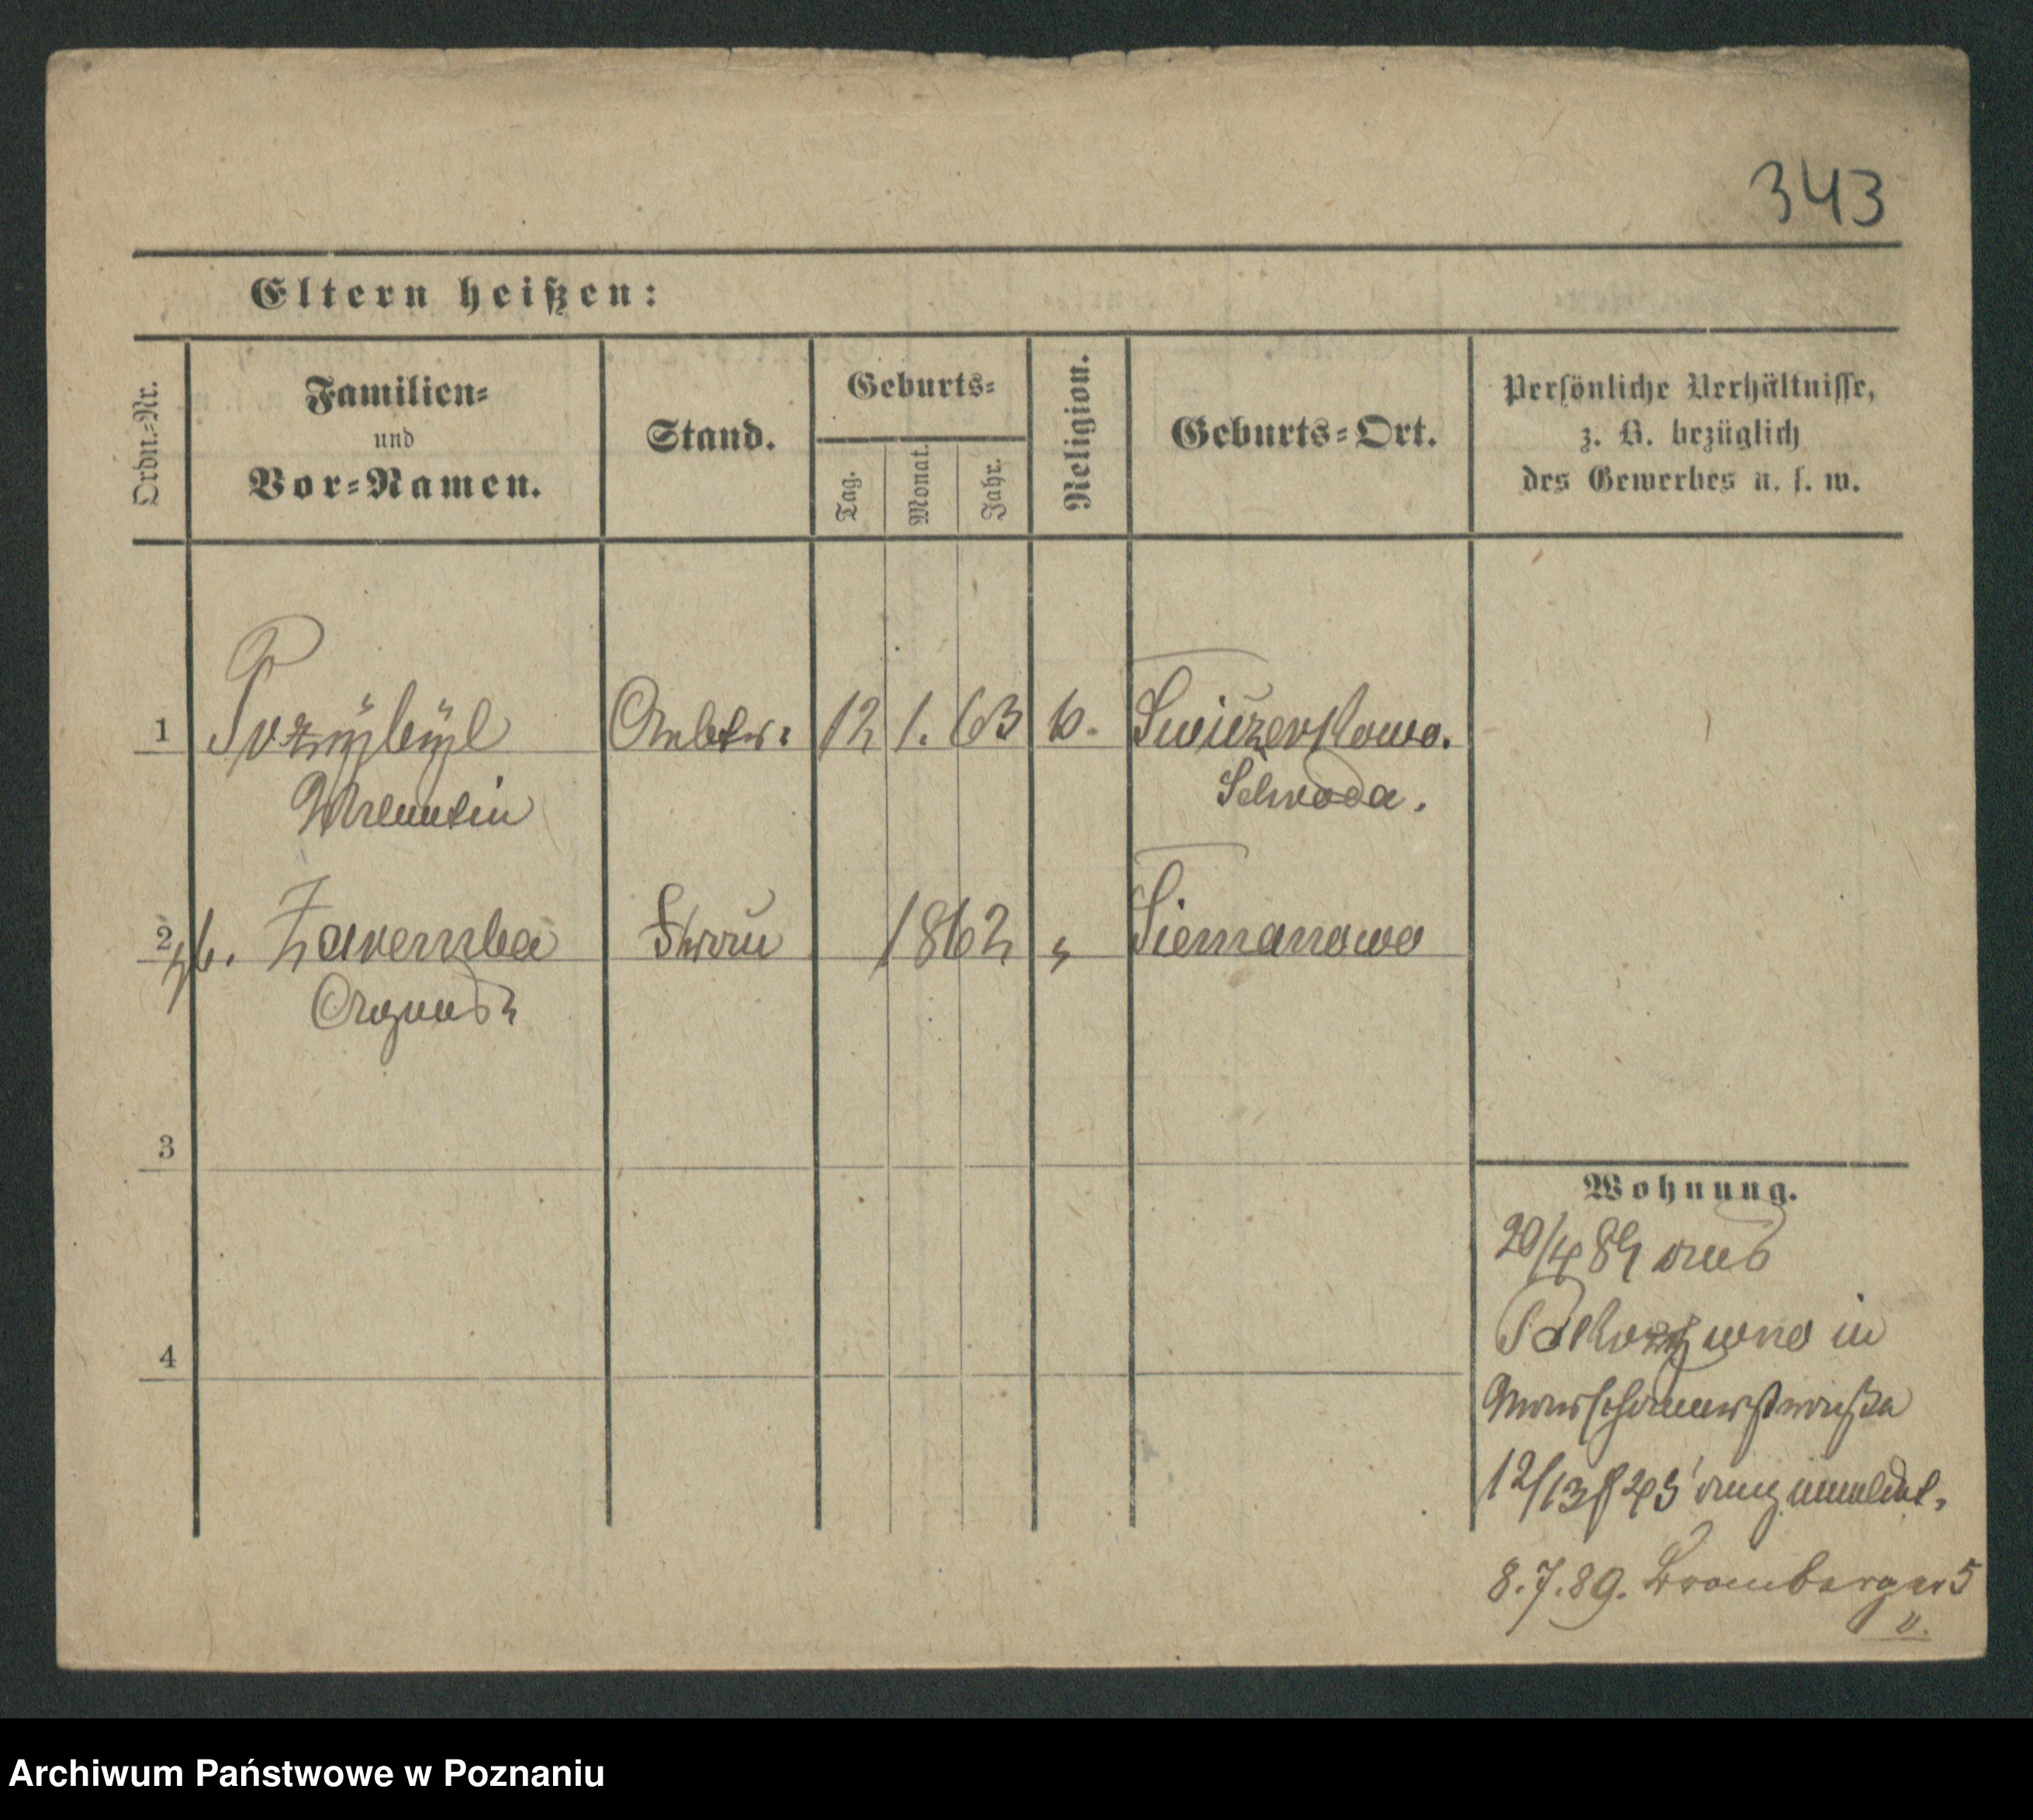 343
Eltern heißen:
Ordn.-Nr.
Familien-
und
Vor-Namen.
Stand.
Geburts-
Tag.
Monat.
Jahr.
Religion.
Geburts-Ort.
Persönliche Verhältnisse,
z. B. bezüglich
des Gewerbes u. s. w.
1 Przÿbÿl Arbtr. 12 1. 63 k.
Valentin Schroda.
2 Zaremba Frau 1862 " Siemianowo
Agnes
3
4
Wohnung.
20/4 89 aus
in
Warschauerstraße
12/13 angemeldet.
8.7.89. Bromberger 5
Archiwum Państwowe w Poznaniu